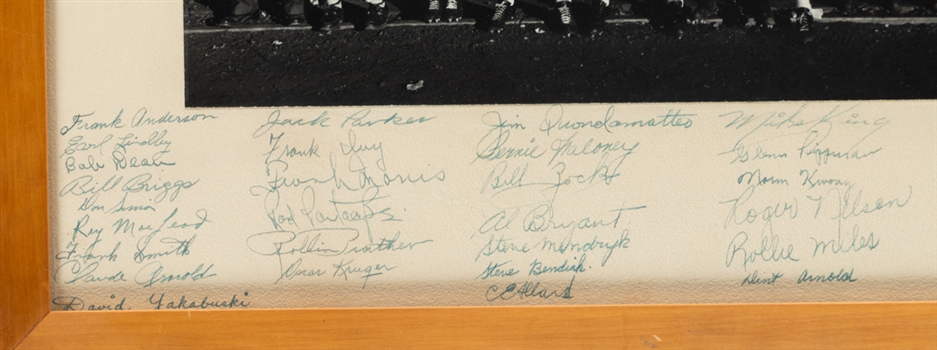 Frank Anderson
Earl Lindley
Bob Dean
Bill Briggs
Don Simon
Ray MacLeod
Frank Smith
Claude Arnold
David. Yakabuski
Jack Parker
Frank Ivy
Frank Morris
Rod
Rollin Prather
Oscar Kruger
Jim Quondamatteo
Bernie Maloney
Bill Zock
Al Bryant
Steve Mendryk
Steve Bendiak.
C E Allard
Mike King
Glenn
Norm Kwong
Roger Nelson
Rollie Miles
Arnold